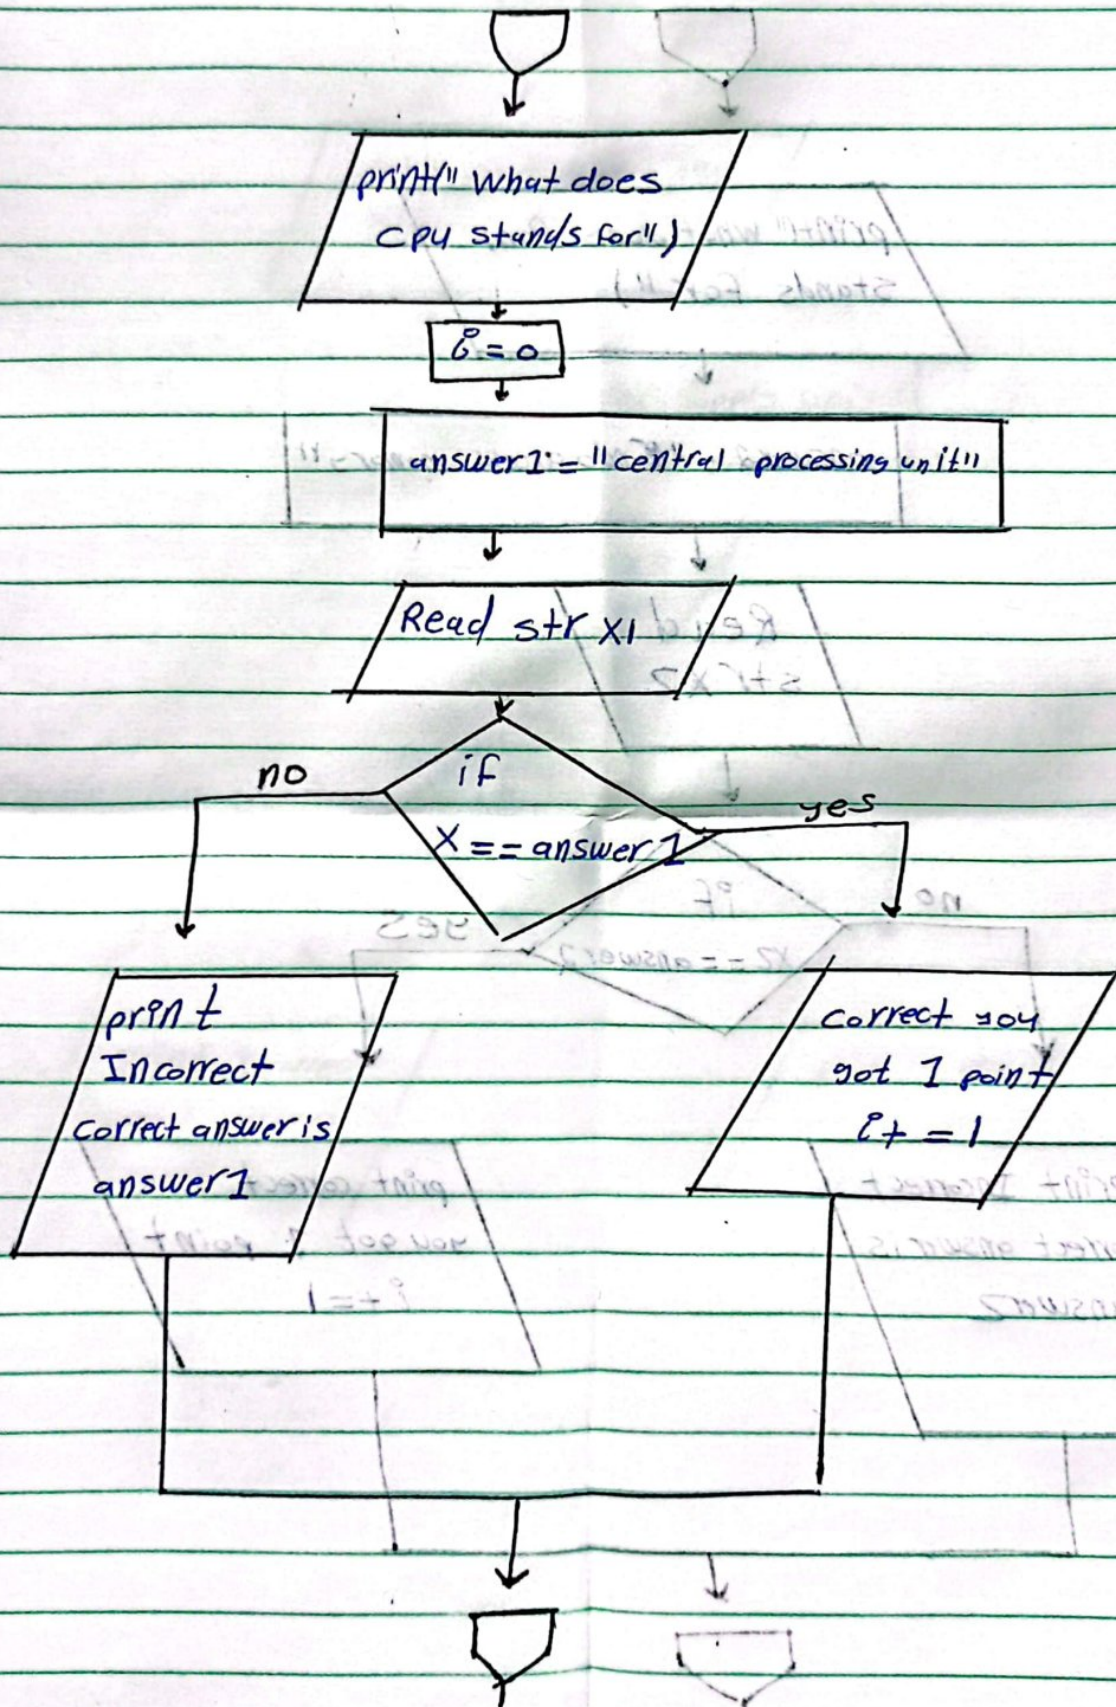 print(" what does
cpu stands for")
i = 0
answer1 = "central processing unit"
Read str x1
if
no
yes
X == answer 1
print
Incorrect
correct answer is
answer1
correct you
got 1 point
i+ = 1